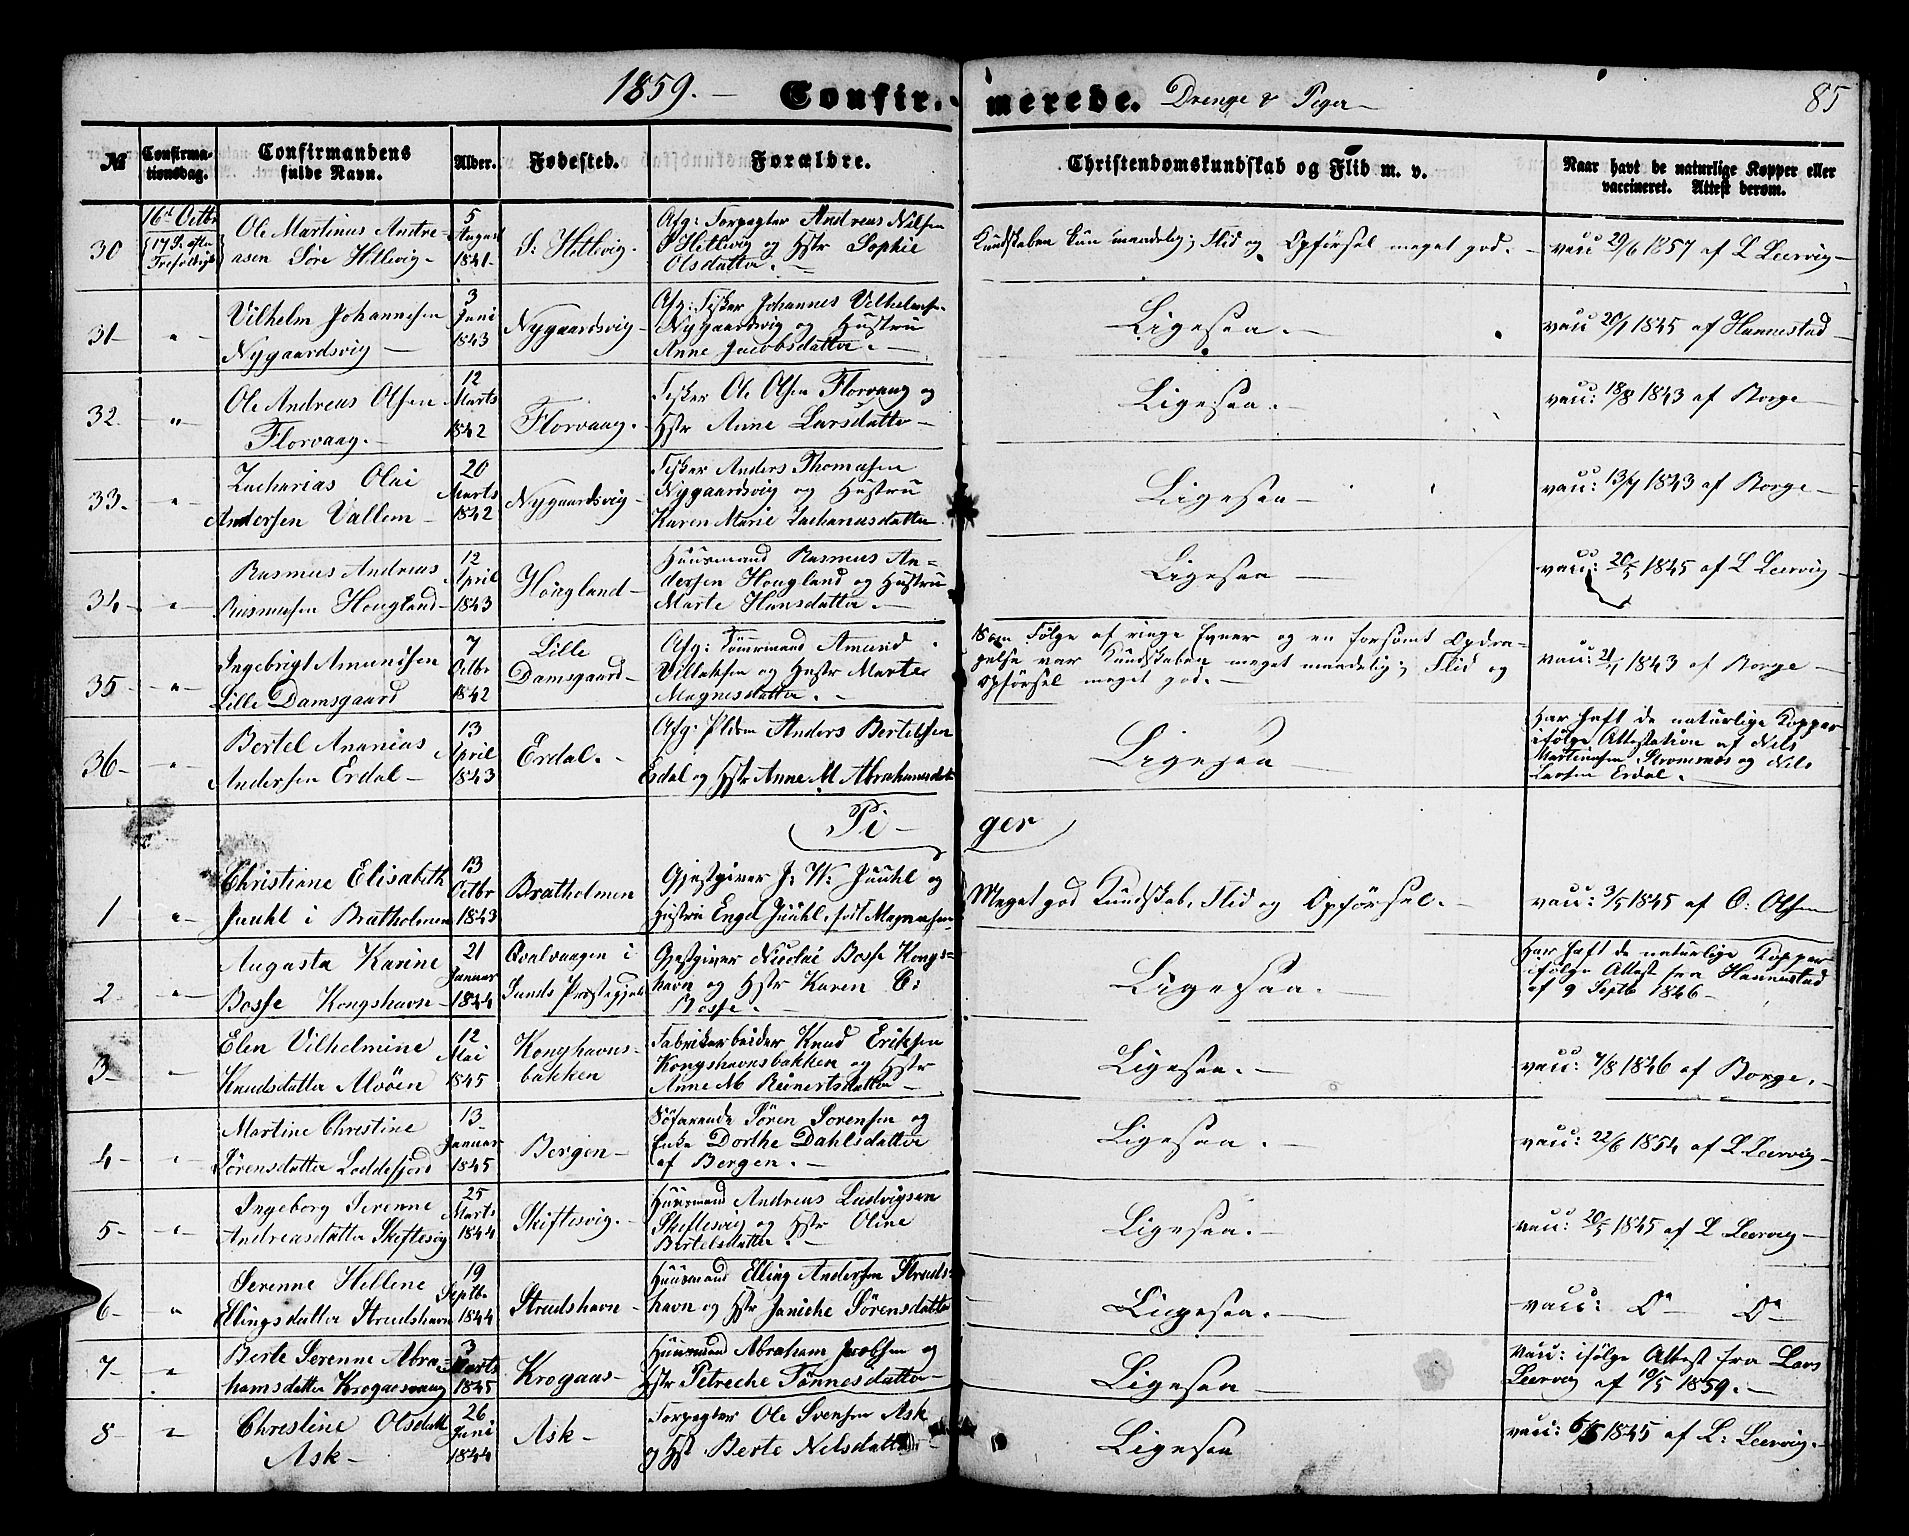 1859. — Confir- merede. Drenge & Piger — 85
№ Confirma-tionsdag. Confirmandens fulde Navn. Alder. Fødested. Forældre. Christendomskundskab og Flid m. v. Naar havt de naturlige Kopper eller vaccineret. Attest derom.
30 16de Octbr 17 S. efter Trefoldigh
Ole Martinus Andre-
asen Søre Hetlevig —
5 August 1841
S: Hetlevig —
Afg: Forpagter Andreas Nilsen
S Hetlevig og Hstr Sophie
Olsdatter. —
Kundskaben kun maadelig; Flid og Opførsel meget god. —
vacc 29/6 1857 af L Leervig —
31 — " —
Vilhelm Johannesen
Nygaardsvig —
3 Juni 1843
Nygaardsvig —
Afg: Fisker Johannes Vilhelmsen
Nygaardsvig og Hustru
Anne Jacobsdatter. —
Ligesaa. —
vacc 20/1 1845 af Hannestad —
32. — " —
Ole Andreas Olsen
Florvaag. —
12 Marts 1842
Florvaag. —
Fisker Ole Olsen Florvaag og
Hstr Anne Larsdatter —
Ligesaa. —
vacc: 18/8 1843 af Borge —
33. — " —
Zacharias Olai
Andersen Vallem —
20 Marts 1842
Nygaardsvig —
Fisker Anders Thomasen
Nygaardsvig og Hustru
Karen Marie Zachariasdatter
Ligesaa —
vacc: 13/7 1843 af Borge —
34 — " —
Rasmus Andreas
Rasmusen Hougland —
12 April 1843
Hougland —
Huusmand Rasmus An-
dersen Hougland og Hustru
Marte Hansdatter. —
Ligesaa —
vacc: 20/5 1845 af L Leervig —
35 — " —
Ingebrigt Amundsen
Lille Damsgaard
7 Octbr 1842
Lille
Damsgaard —
Afg: Tømmermand Amund
Villaksen og Hustr Marte
Magnesdatter. —
Som Følge af ringe Evner og en forsømt Opdra-
gelse var Kundskaben meget maadelig; Flid og
Opførsel meget god. —
vacc: 21/1 1843 af Borge —
36 — " —
Bertel Ananias
Andersen Erdal —
13 April 1843
Erdal. —
Afg: Anders Bertelsen
Erdal og Hstr Anne M Abrahamsdatr
Ligesaa —
Har haft de naturlige Kopper
ifølge Attestation af Nils
Martinusen Stromsnæs og Nils
Larsen Erdal. —
Pi — ger
1 "
Christiane Elisabeth
Juuhl i Bratholmen
13 Octbr 1843
Bratholmen
Gjestgiver J: W: Juuhl og
Hustru Engel Juuhl, født Magnesen
Meget god Kundskab, Flid og Opførsel. —
vacc: 3/5 1845 af O: Olsen
2. "
Augusta Karine
Bosse Kongshavn —
21 Januar 1844
Qvalvaagen i
Sunds Præstegjeld
Gjestgiver Nicolai Bosse Kongs-
havn og Hstr Karen C:
Bosse. —
Ligesaa. —
Har haft de naturlige Kopper
ifølge Attest fra Hannestad
af 9 Septb 1846 —
3 — "
Elen Vilhelmine
Knudsdatter Alvøen
12 Mai 1845
Konghavns-
bakken
Fabrikarbeider Knud Eriksen
Kongshavnsbakken og Hstr
Anne M Reinertsdatter —
Ligesaa. —
vacc: 7/8 1846 af Borge. —
4 — "
Martine Christine
Sørensdatter Loddefjord
13 Januar 1845
Bergen —
Søfarende Søren Sorensen og
Enke Dorthe Dahlsdatter
af Bergen. —
Ligesaa. —
vacc: 22/6 1854 af L Leervig —
5 — "
Ingeborg Serenne
Andreasdatter Skiftesvig
25 Marts 1844
Skiftesvig. —
Huusmand Andreas Ludvigsen
Skiftesvig og Hstr Oline
Bertelsdatter. —
Ligesaa. —
vacc: 20/5 1845 af L Leervig —
6 — "
Serenne Hellene
Ellingsdatter Strudshavn
19 Septbr 1844
Strudshavn —
Huusmand Elling Andersen Struds-
havn og Hstr Janiche Sørensdatter
Ligesaa. —
vacc: Do — Do —
7 — "
Berte Serenne Abra-
hamsdatter Krogaasvaag
3 Marts 1845
Krogaas —
Huusmand Abraham Jacobsen og
Hstr Petreche Tønnesdatter —
Ligesaa —
Vacc: ifølge Attest fra Lars
Leervig af 10/5 1859. —
8 — "
Christine Olsdatt
Ask —
26 Juni 1844
Ask —
Forpagter Ole Svensen Ask
og Hst Berte Nelsdatter —
Ligesaa
vacc: 6/5 1845 af L: Leervig. —